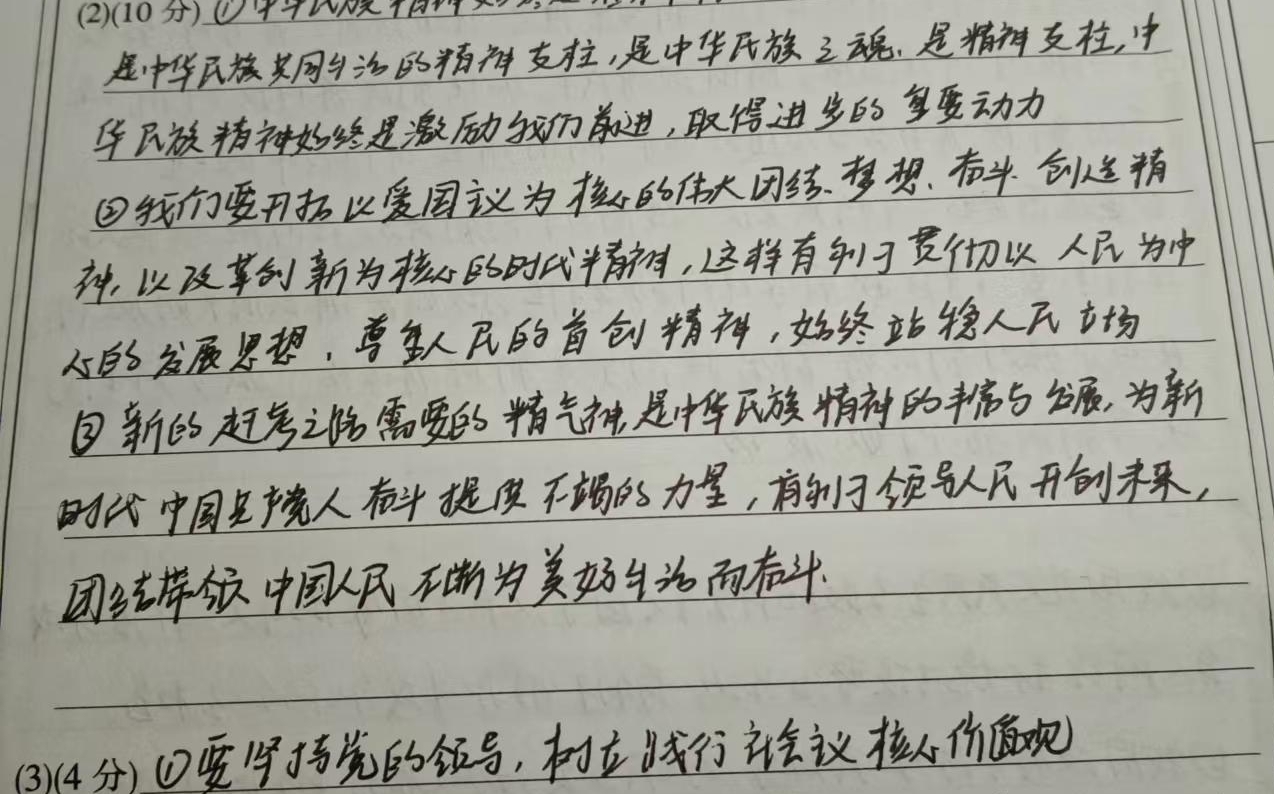 (2)(10分)①中华民族精神始终是
是中华民族共同生活的精神支柱,是中华民族之魂.是精神支柱,中
华民族精神始终是激励我们前进,取得进步的重要动力
②我们要开拓以爱国主义为核心的伟大团结、梦想、奋斗.创造精
神,以改革创新为核心的时代精神,这样有利于贯彻以人民为中
心的发展思想,尊重人民的首创精神,始终站稳人民立场
③新的赶考之路需要的精气神,是中华民族精神的丰富与发展,为新
时代中国共产党人奋斗提供不竭的力量,有利于领导人民开创未来,
团结带领中国人民不断为美好生活而奋斗.
(3)(4分)①要坚持党的领导,树立践行社会主义核心价值观